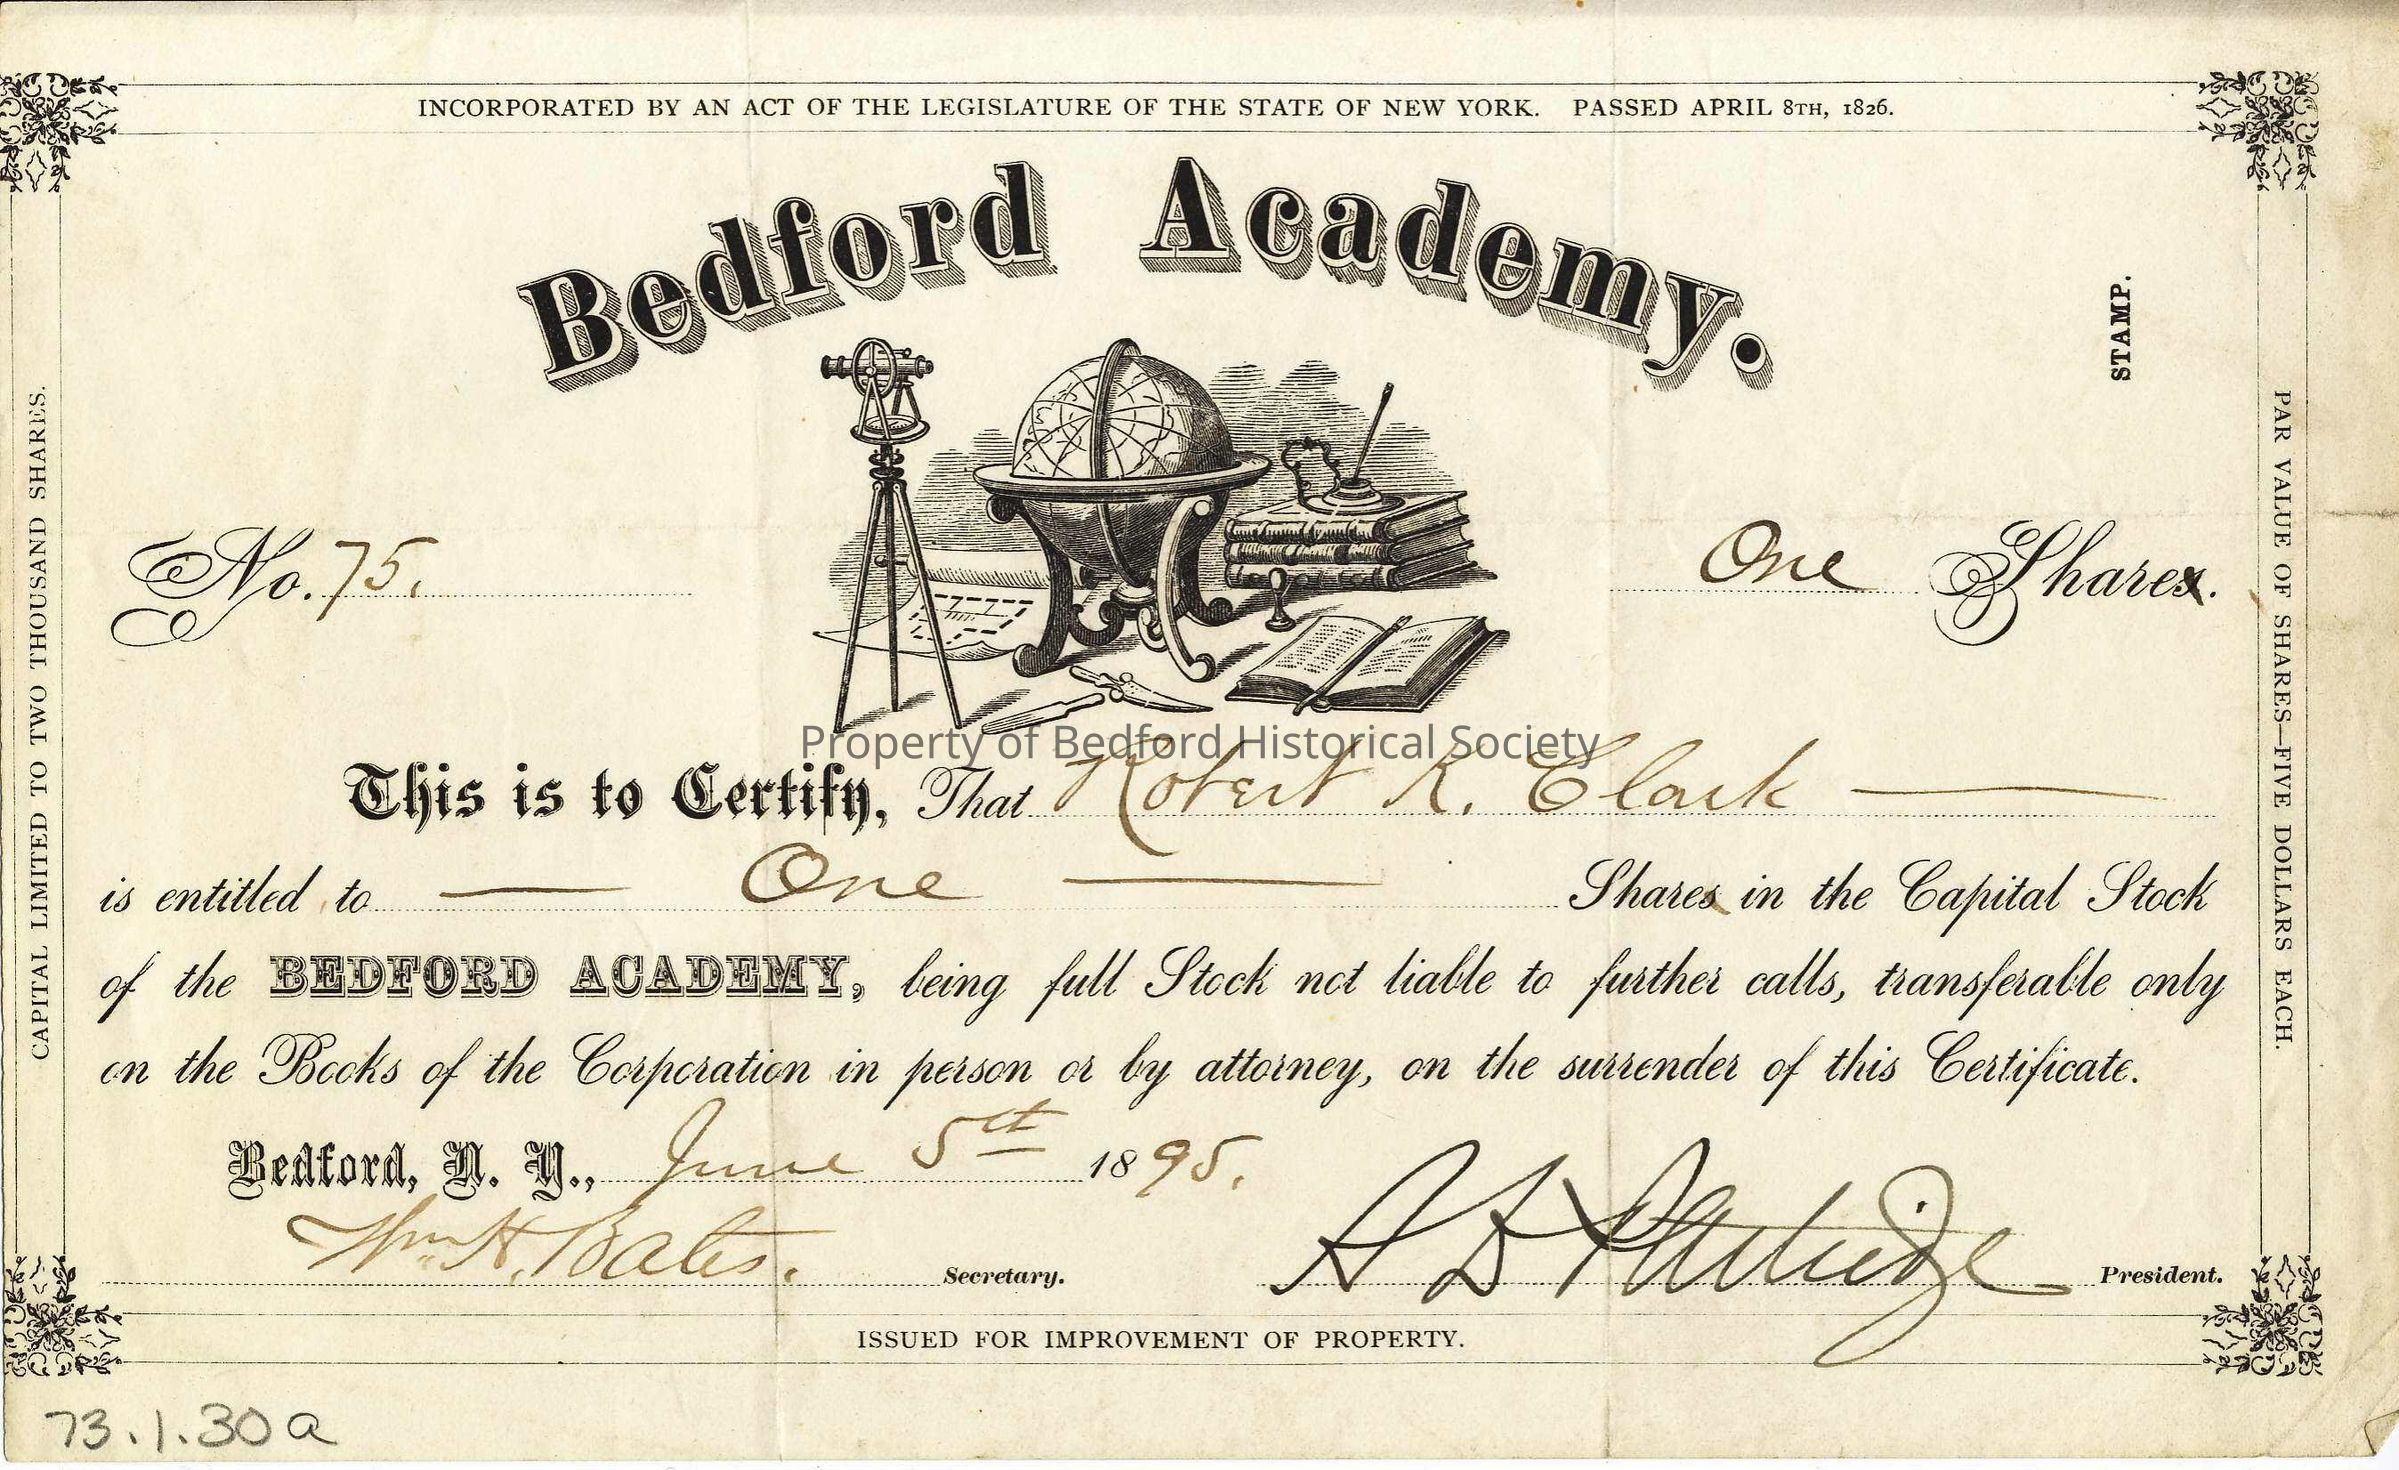 INCORPORATED BY AN ACT OF THE LEGISLATURE OF THE STATE OF NEW YORK. PASSED APRIL 8TH, 1826.
Bedford Academy.
STAMP.
CAPITAL LIMITED TO TWO THOUSAND SHARES.
PAR VALUE OF SHARES—FIVE DOLLARS EACH.
No. 75.
One Shares.
Property of Bedford Historical Society
This is to Certify, That Robert R. Clark
is entitled to One Shares in the Capital Stock
of the BEDFORD ACADEMY, being full Stock not liable to further calls, transferable only
on the Books of the Corporation in person or by attorney, on the surrender of this Certificate.
Bedford, N. Y., June 5th 1895.
Wm. H. Bates. Secretary.
President.
ISSUED FOR IMPROVEMENT OF PROPERTY.
73.1.30a